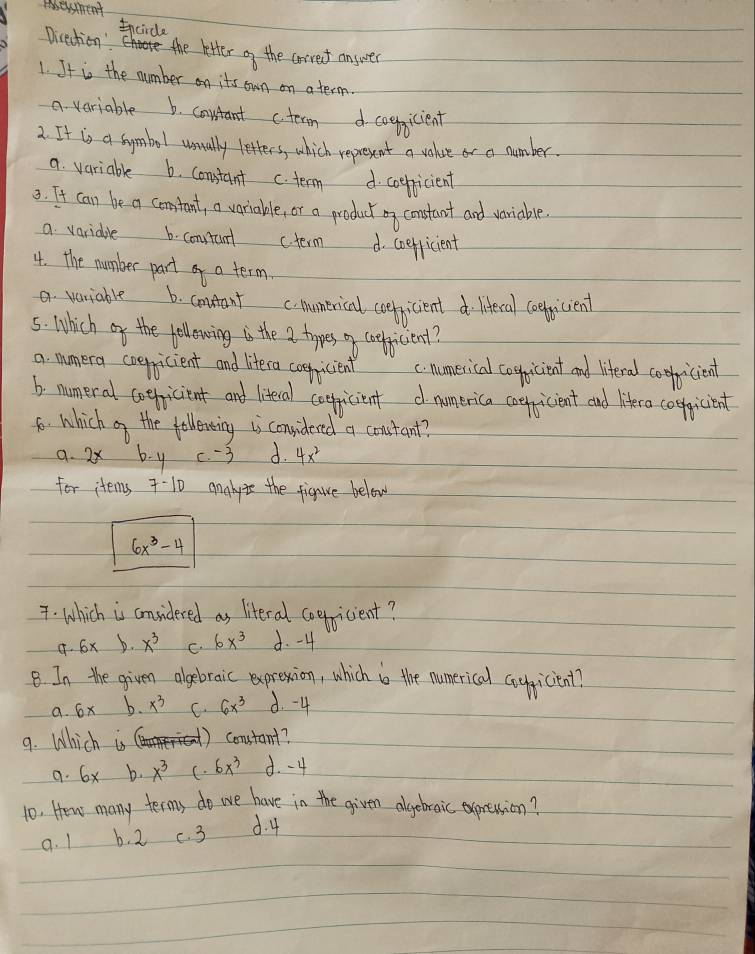 Assessment
Encircle
Direction: Choose the letter of the correct answer
1. It is the number on its own on a term.
a. variable b. constant c. term d. coefficient
2. It is a symbol usually letters, which represent a value or a number.
a. variable b. constant c. term d. coefficient
3. It can be a constant, a variable, or a product of constant and variable.
a. variable b. constant c. term d. coefficient
4. The number part of a term.
a. variable b. constant c. numerical coefficient d. literal coefficient
5. Which of the following is the 2 types of coefficient?
a. numera coefficient and litera coefficient c. numerical coefficient and literal coefficient
b. numeral coefficient and literal coefficient d. numerica coefficient and litera coefficient
6. Which of the following is considered a constant?
a. 2x b. y c. -3 d. 4x²
For items 7-10 analyze the figure below
6x³-4
7. Which is considered as literal coefficient?
a. 6x b. x³ c. 6x³ d. -4
8. In the given algebraic expression, which is the numerical coefficient?
a. 6x b. x³ c. 6x³ d. -4
9. Which is (numerical) constant?
a. 6x b. x³ c. 6x³ d. -4
10. How many terms do we have in the given algebraic expression?
a. 1 b. 2 c. 3 d. 4